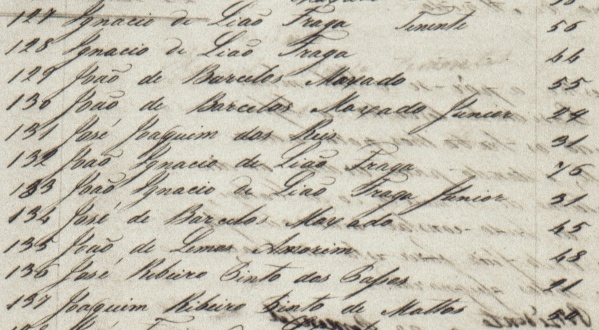 127 Ignacio de Lião Fraga Tenente 56
128 Ignacio de Lião Fraga 44
129 João de Barcelos Maxado 55
130 João de Barcelos Maxado Junior 29
131 José Joaquim dos Reis 31
132 João Ignacio de Lião Fraga 76
133 João Ignacio de Lião Fraga Junior 31
134 José de Barcelos Maxado 45
135 João de Lemos Amorim 48
136 José Ribeiro Pinto dos Passos 21
137 Joaquim Ribeiro Pinto de Mattos